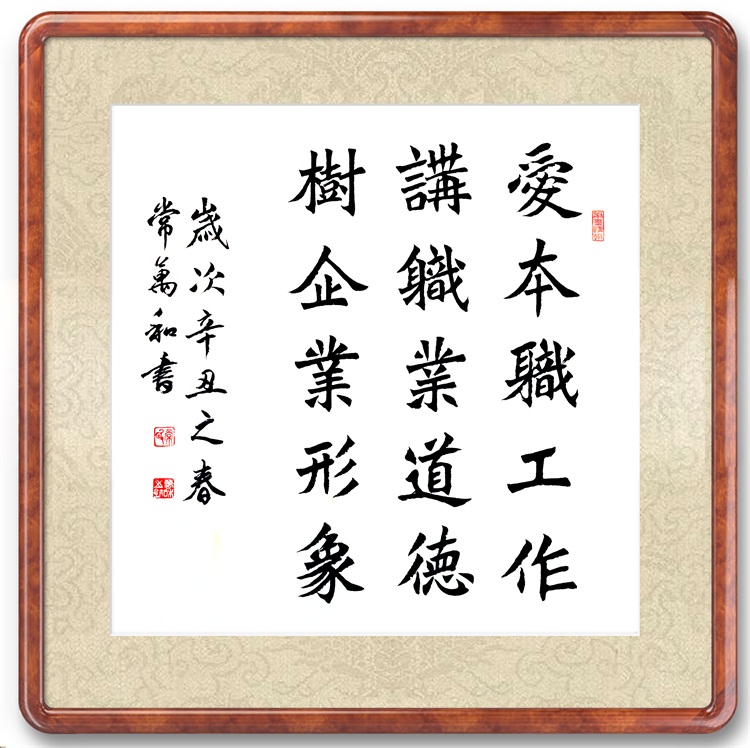 愛本職工作
講職業道德
樹企業形象
歲次辛丑之春
常萬和书